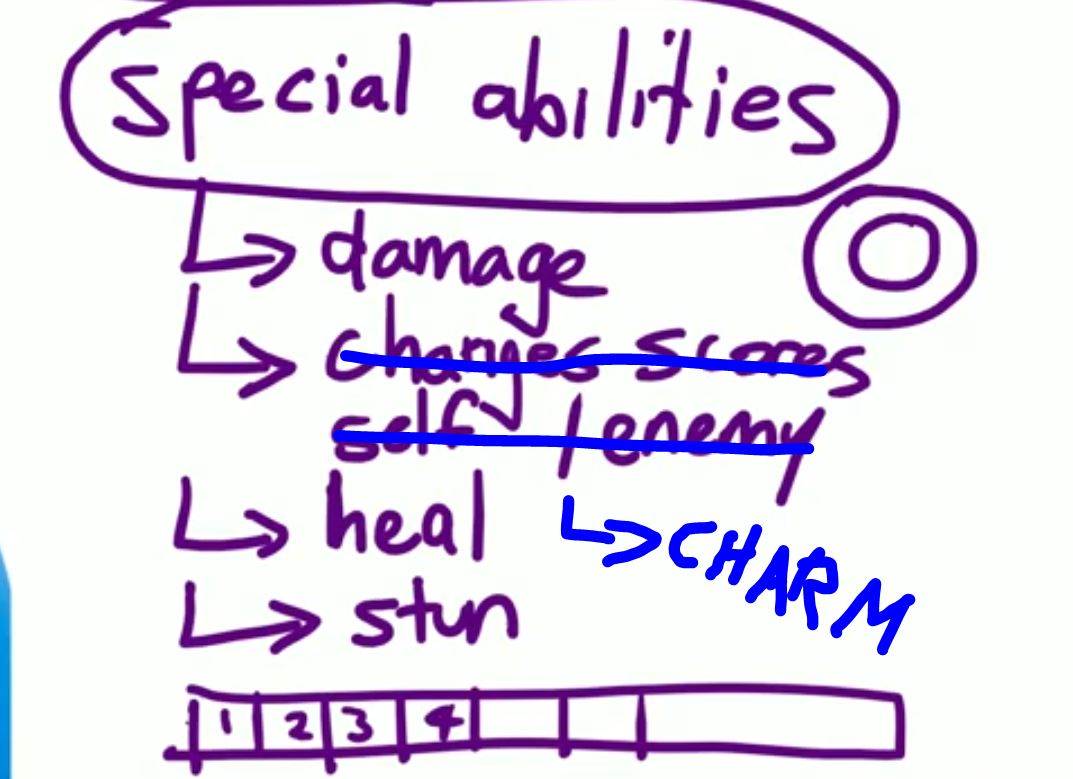 special abilities
damage
changes scores
self / enemy
heal
CHARM
stun
1 2 3 4